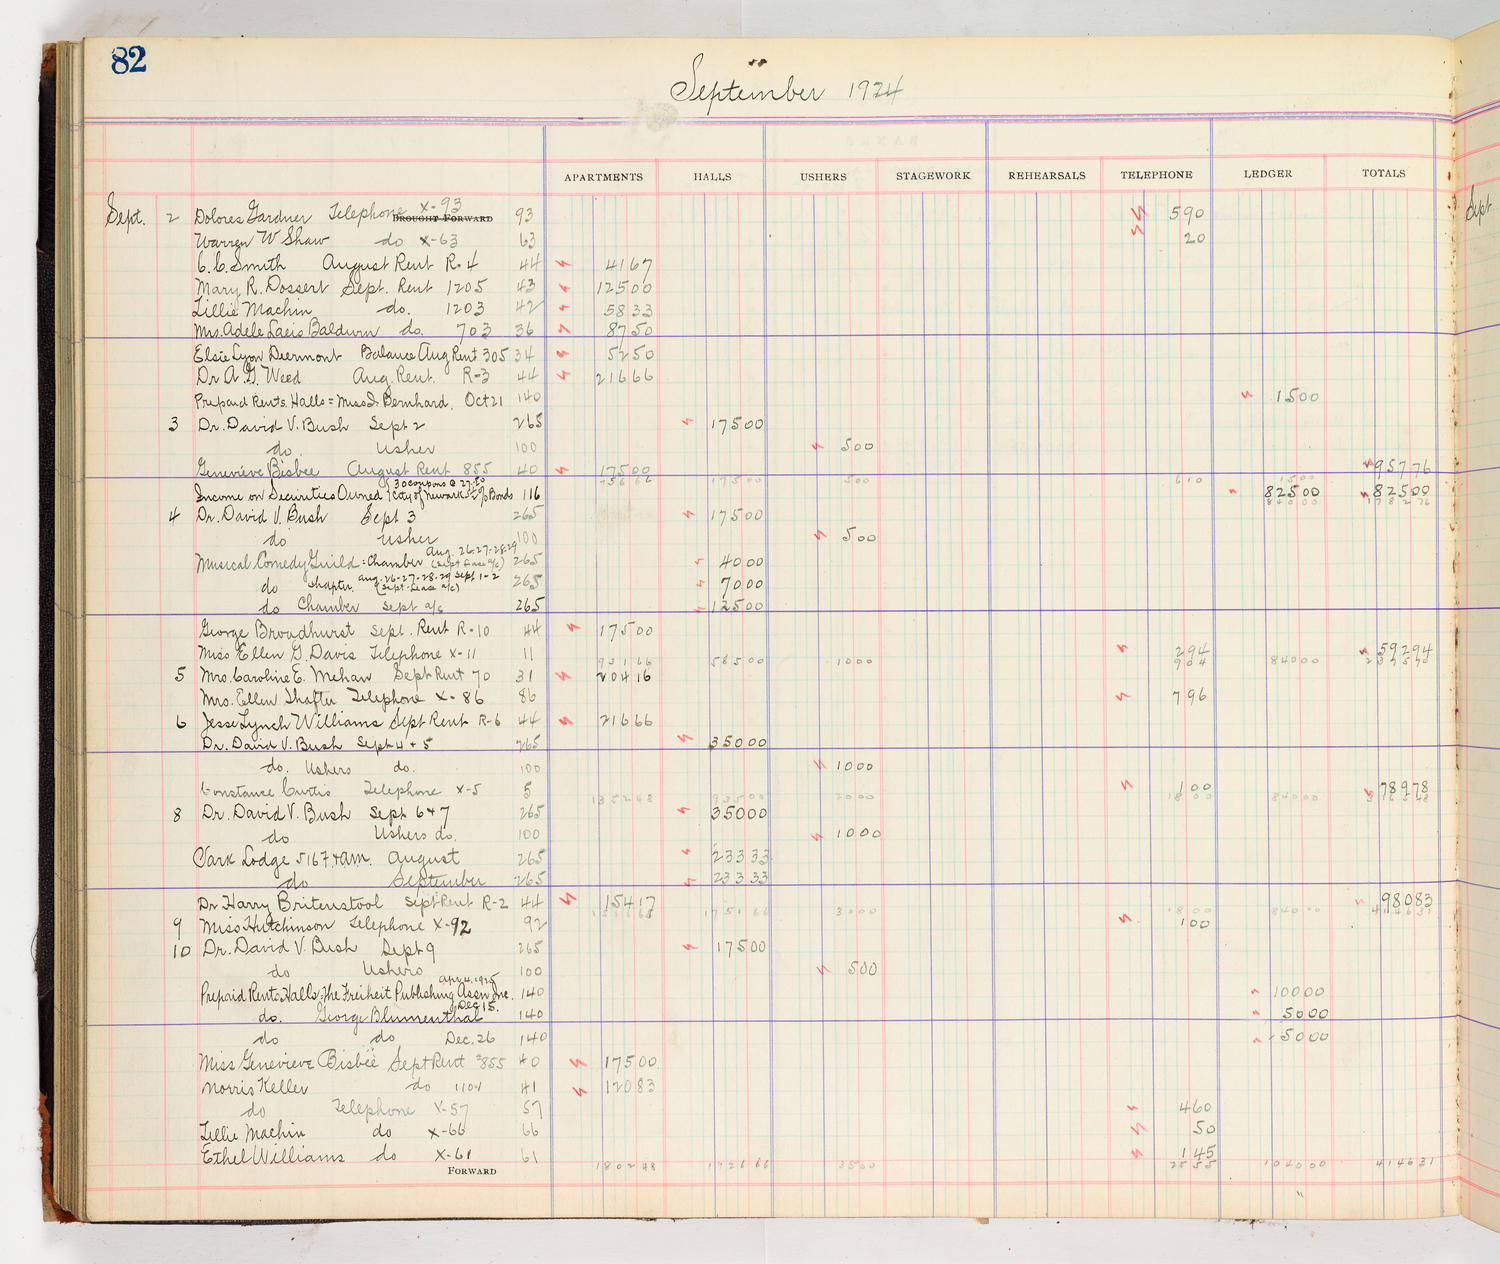 82
September 1924
APARTMENTS HALLS USHERS STAGEWORK REHEARSALS TELEPHONE LEDGER TOTALS
Sept. 2 Dolores Gardner Telephone X-93 93 590
BROUGHT FORWARD
Warren W Shaw do X-63 63 20
C.C. Smith August Rent R.4 44 4167
Mary R. Dossert Sept. Rent 1205 43 12500
Lillie Machin do. 1203 42 5833
Mrs. Adele Laeis Baldwin do. 703 36 8750
Elsie Lyon Deermont Balance Aug Rent 305 34 5250
Dr A. G. Weed Aug. Rent. R-3 44 21666
Prepaid Rents. Halls = Miss D. Bernhard. Oct 21 140 1500
3 Dr. David V. Bush Sept 2 265 17500
do. Usher 100 500
Genevieve Bisbee August Rent 855 40 17500 95776
75666 17500 500 610 1500
Income on Securities Owned 30 coupons @ 27.50 City of Newark 5½% Bonds 116 82500 82500
84000 178276
4 Dr. David V. Bush Sept 3 265 17500
do Usher 100 500
Musical Comedy Guild = Chamber Aug. 26-27-28-29 (Sept Lease a/c) 265 4000
do Chapter. Aug. 26-27-28-29 Sept 1-2 (Sept. Lease a/c) 265 7000
do Chamber Sept a/c 265 12500
George Broadhurst Sept. Rent R-10 44 17500
Miss Ellen G. Davis Telephone X-11 11 294 59294
93166 58500 1000 904 84000 237570
5 Mrs. Caroline E. Mehan Sept Rent 70 31 20416
Mrs. Ellen Shafter Telephone X-86 86 796
6 Jesse Lynch Williams Sept Rent R-6 44 21666
Dr. David V. Bush Sept 4 + 5 265 35000
do. Ushers do. 100 1000
Constance Curtis Telephone X-5 5 100 78978
135248 93500 2000 1800 84000 316548
8 Dr. David V. Bush Sept 6 + 7 265 35000
do Ushers do. 100 1000
Park Lodge 516 F. + A.M. August 265 23333
do September 265 23333
Dr. Harry Britenstool Sept Rent R-2 44 15417 98083
150665 175166 3000 1800 84000 414631
9 Miss Hutchinson Telephone X-92 92 100
10 Dr. David V. Bush Sept 9 265 17500
do Ushers 100 500
Prepaid Rents. Halls. The Freiheit Publishing Assn Inc. Apr 4. 1925 140 10000
do. George Blumenthal Dec 15. 140 5000
do do Dec. 26 140 5000
Miss Genevieve Bisbee Sept Rent 855 40 17500
Norris Keller do 1101 41 12083
do Telephone X-57 57 460
Lillie Machin do X-66 66 50
Ethel Williams do X-61 61 145
FORWARD 180248 192666 3500 2555 104000 414631
Sept